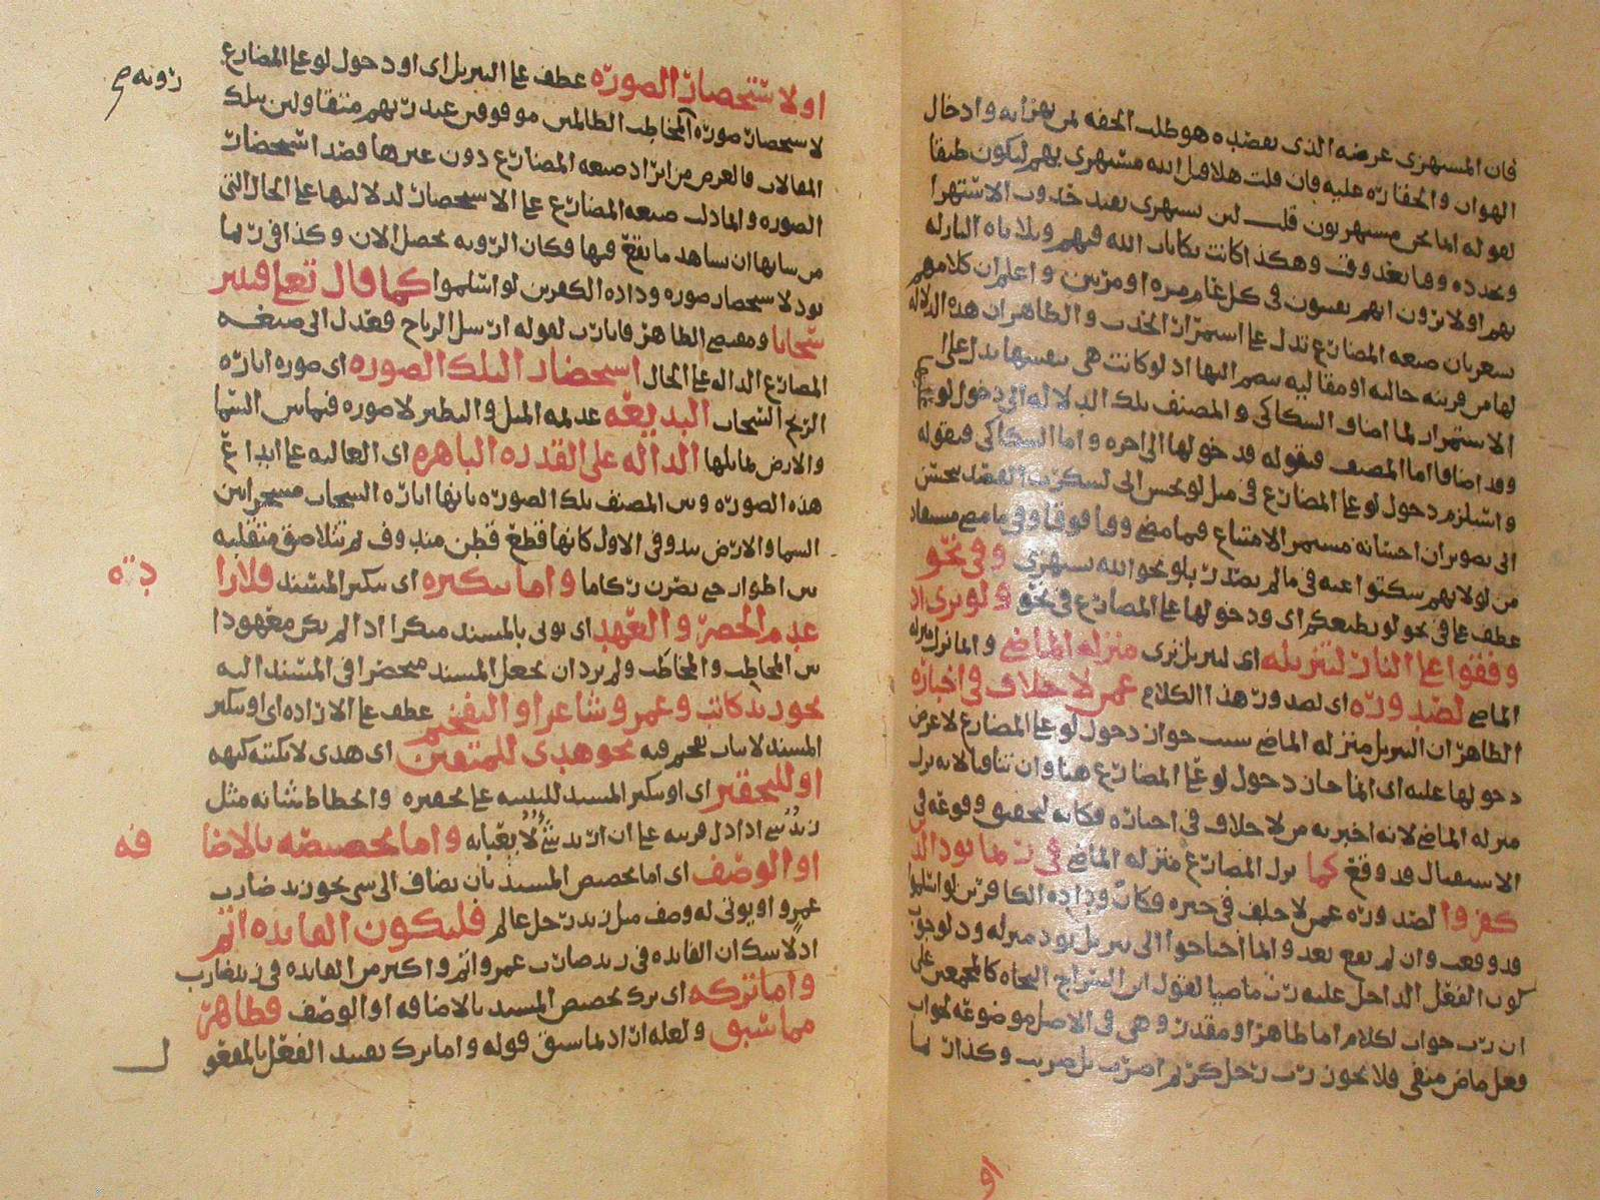 فان المستهزى غرضه الذى يقصده هو طلب الخفه لمن يهزا به وادخال
الهوان والحقاره عليه فان قلت هلا قيل الله مستهزى بهم ليكون طبقا
لقوله انما نحن مستهزيون قلت لان يستهزى يفيد حدوث الاستهزا
وتجدده وقتا بعد وقت وهكذا كانت نكايات الله فيهم وبلاياه النازله
بهم اولا يرون انهم يفتنون فى كل عام مره او مرتين واعلم ان كلامهم
يشعر بان صيغه المضارع تدل على استمرار الحدث والظاهر ان هذه الدلاله
لها من قرينه حاليه او مقاليه ينضم اليها اذ لو كانت هى بنفسها تدل على
الاستمرار لما اضاف السكاكى والمصنف تلك الدلاله الى دخول لو
وقد اضافا اما المصنف فبقوله قد خولها الى اخره واما السكاكى فبقوله
واستلزم دخول لو على المضارع فى مثل لو تحسن الى لشكرت القصد بحسن
الى تصوير ان احسانه مستمر الامتناع فيما مضى وقتا فوقتا وفى ما مضى مستفاد
من لو لا بهم سكتوا عنه فى ما لم يصدر بلو نحو الله يستهزى وفى نحو
عطف على فى نحو لو يطيعكم اى ودخولها على المضارع فى نحو ولو ترى اذ
وقفوا على النار لتنزيله اى لتنزيل ترى منزله الماضى وانما نزل منزله
الماضى لصدوره اى لصدور هذا الكلام عمن لا خلاف فى اخباره
الظاهر ان التنزيل منزله الماضى سبب جواز دخول لو على المضارع لا غرض
دخولها عليه اى انما جاز دخول لو على المضارع هنا وان تنافيا لانه نزل
منزله الماضى لانه اخبر به من لا خلاف فى اخباره فكانه لتحقيق وقوعه فى
الاستقبال قد وقع كما نزل المضارع منزله الماضى فى ربما يود الذين
كفروا لصدوره عمن لا خلف فى خبره فكان وداده الكافرين لو اسلموا
قد وقعت وان لم تقع بعد وانما احتاجوا الى تنزيل يود منزله ود لوجوب
كون الفعل الداخل عليه رب ماضيا لقول ابن السراج النحاه كالمجمعين على
ان رب جواب لكلام اما ظاهر او مقدر وهى فى الاصل موضوعه لجواب
فعل ماض منفى فلا يجوز رب رجل كريم اضرب بل ضربت وكذا ربما
او
اولاستحضار الصوره عطف على التنزيل اى او دخول لو على المضارع
لاستحضار صوره المخاطب الظالمين موقوفين عند ربهم متقاولين بتلك
المقالات فالغرض من ايراد صيغه المضارع دون غيرها قصد استحضار
الصوره وانما دلت صيغه المضارع على الاستحضار لدلالتها على الحال التى
من شانها ان يشاهد ما يقع فيها فكان الرويه تحصل الان وكذا فى ربما
يود لاستحضار صوره وداده الكفرين لو اسلموا كما قال تعالى فتثير
سحابا ومقتضى الظاهر فاثارت لقوله ارسل الرياح فعدل الى صيغه
المضارع الداله على الحال استحضار التلك الصوره اى صوره اثاره
الريح السحاب البديعه عديمه المثل والنظير لا صوره فيما بين السما
والارض تماثلها الداله على القدره الباهره اى الغالبه على ابداع
هذه الصوره وبين المصنف تلك الصوره بانها اثاره السحاب مسخرا بين
السما والارض تبدو فى الاول كانها قطع قطن مندوف ثم تتلاصق منقلبه
بين اطوار حتى يصرن ركاما واما تنكيره اى تنكير المسند فلارا
عدم الحصر والعهد اى يوتى بالمسند منكرا اذا لم يكن معهودا
بين المخاطب والمخاطب ولم يرد ان يجعل المسند منحصرا فى المسند اليه
نحو زيد كاتب وعمرو شاعر او التفخيم عطف على الاراده اى او تنكير
المسند لاثبات تفخيم فيه نحو هدى للمتقين اى هدى لا يكتنه كنهه
او للتحقير اى او تنكير المسند للتنبيه على تحقيره وانحطاط شانه مثل
زيد شى اذا دل قرينه على ان اريد شى لا يعبا به واما تخصيصه بالاضا
او الوصف اى اما تخصيص المسند بان يضاف الى شى نحو زيد ضارب
عمرو او يوتى له وصف مثل زيد رجل عالم فليكون الفايده اتم
اذ لا شك ان الفايده فى زيد ضارب عمرو اتم واكثر من الفايده فى زيد ضارب
واما تركه اى ترك تخصيص المسند بالاضافه او الوصف فظاهر
مما سبق ولعله اراد بما سبق قوله واما ترك تقييد الفعل بالمفعو
رويه
دته
فه
ل